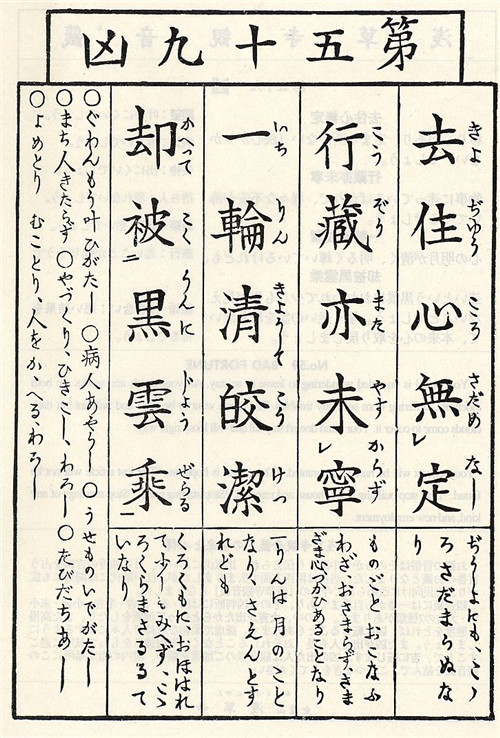 第五十九凶
去住心無レ定
きよ ぢゆう こゝろ さだめ なし
ぢうしよにも、こゝ
ろさだまらぬな
り
行藏亦未レ寧
こう ぞう また やす からず
ものごとおこなふ
わざ、おさまらずさま
ざま心づかひあることなり
一輪清皎潔
いち りん きようして こう けつ
一りんは月のこと
なりさえんとす
れども
却被二黒雲乘
かへつて こく うんに じよ ぜらる
くもにおほはれ
て少しもみへず、こゝ
ろくらまさるるて
いなり
○ぐわんもう叶ひがたし ○病人あやうし ○うせものいでがたし
○まち人きたらず○やづくり、ひきこし、わろし○たびだちあし
○よめとり むことり、人をかゝへる、わろし